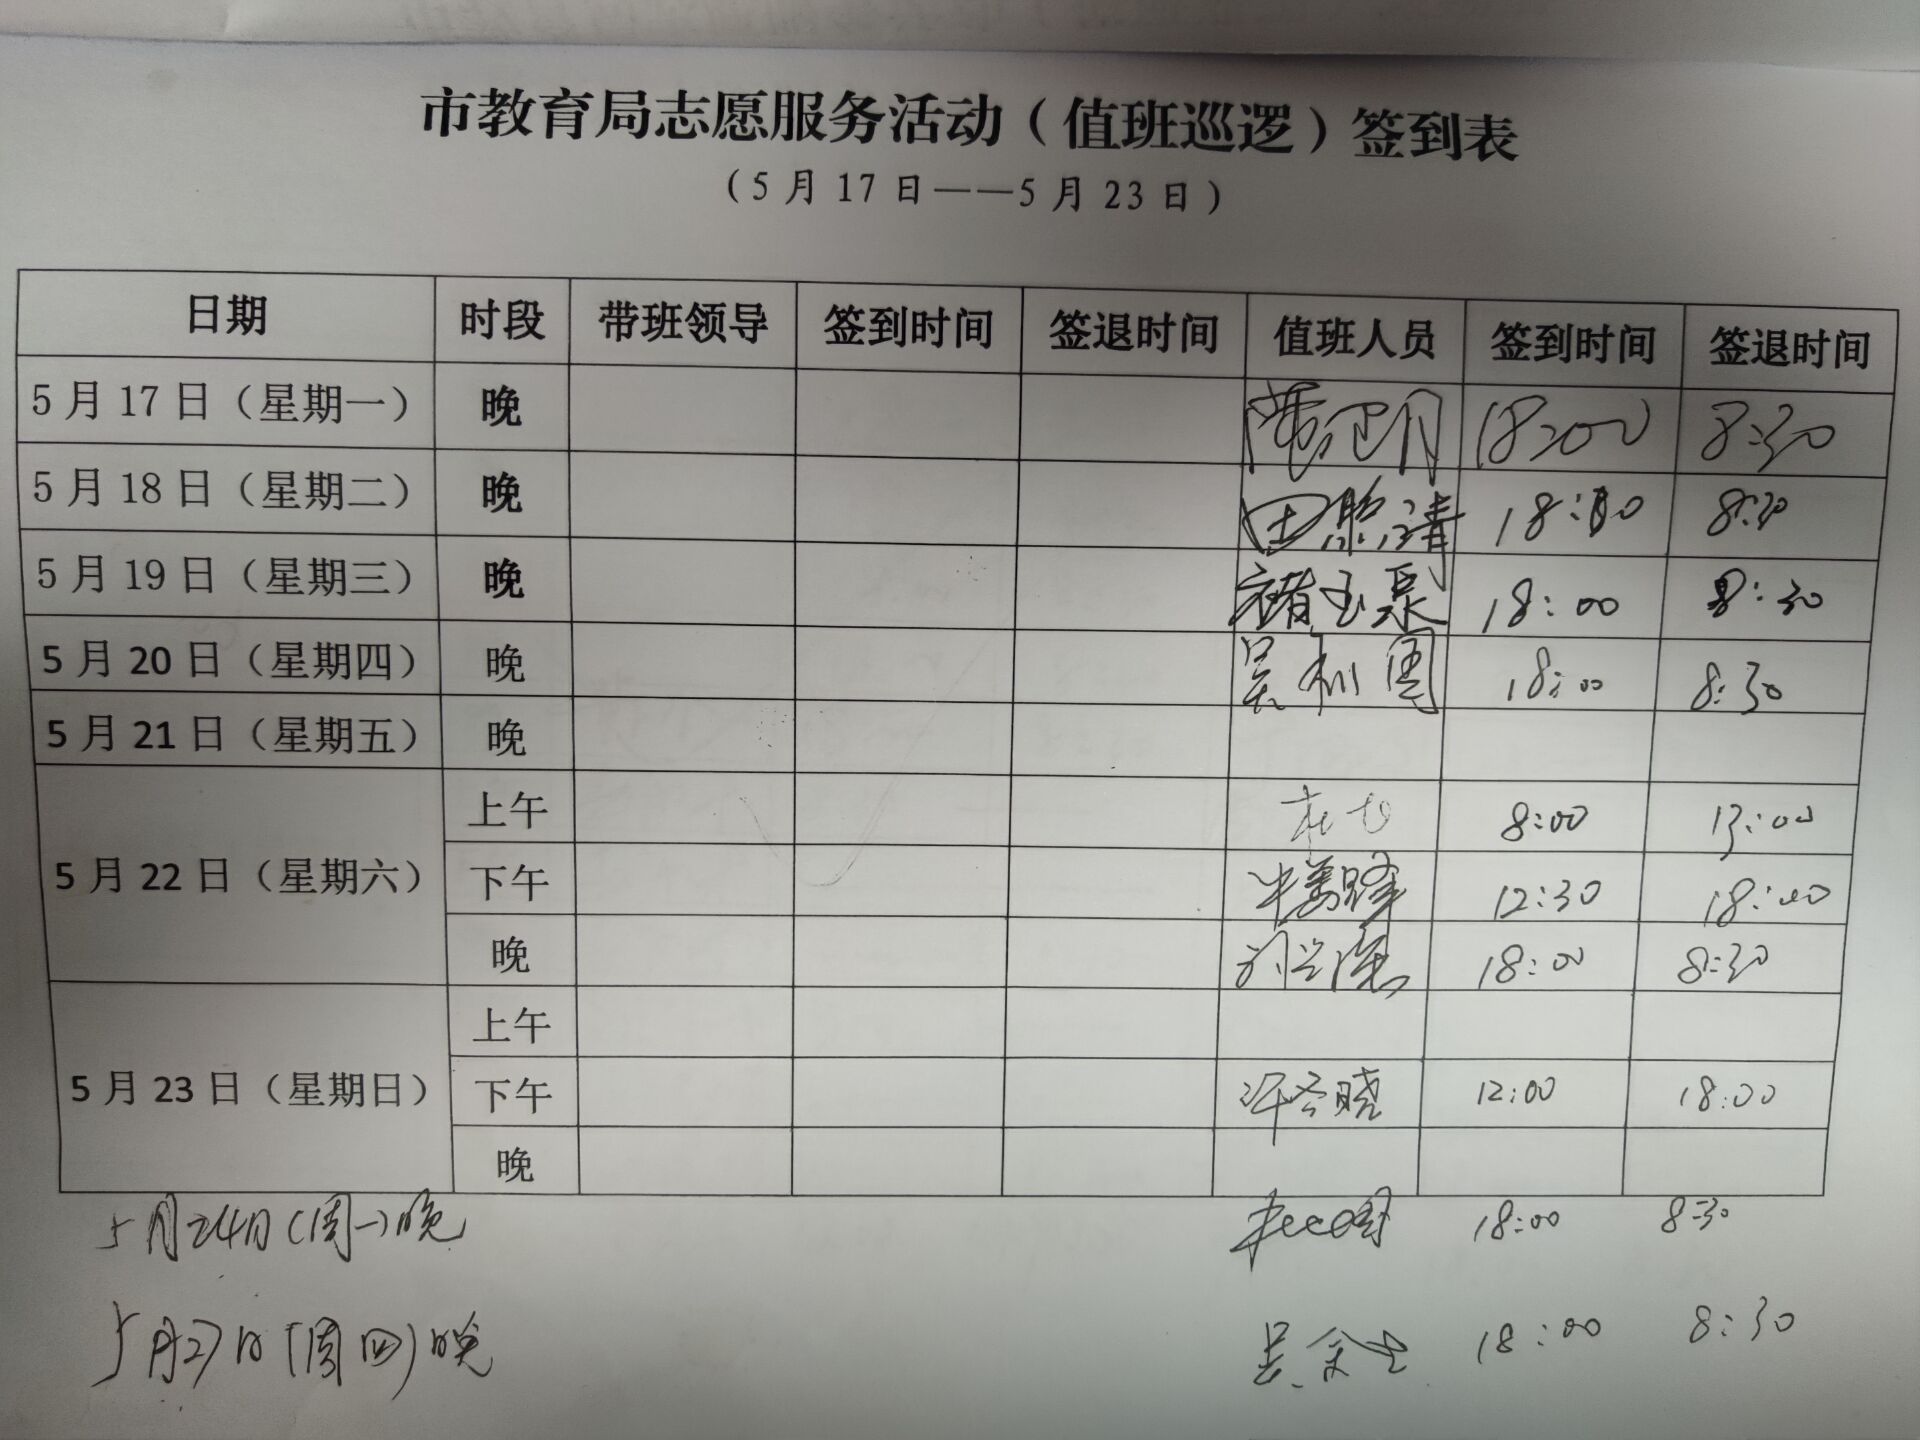 市教育局志愿服务活动（值班巡逻）签到表
（5月17日——5月23日）
日期 时段 带班领导 签到时间 签退时间 值班人员 签到时间 签退时间
5月17日（星期一） 晚 18:00 8:30
5月18日（星期二） 晚 18:00 8:30
5月19日（星期三） 晚 褚玉泉 18:00 8:30
5月20日（星期四） 晚 18:00 8:30
5月21日（星期五） 晚
5月22日（星期六） 上午 8:00 13:00
下午 12:30 18:00
晚 18:00 8:30
5月23日（星期日） 上午
下午 12:00 18:00
晚
5月24日(周一)晚 18:00 8:30
5月27日(周四)晚 18:00 8:30